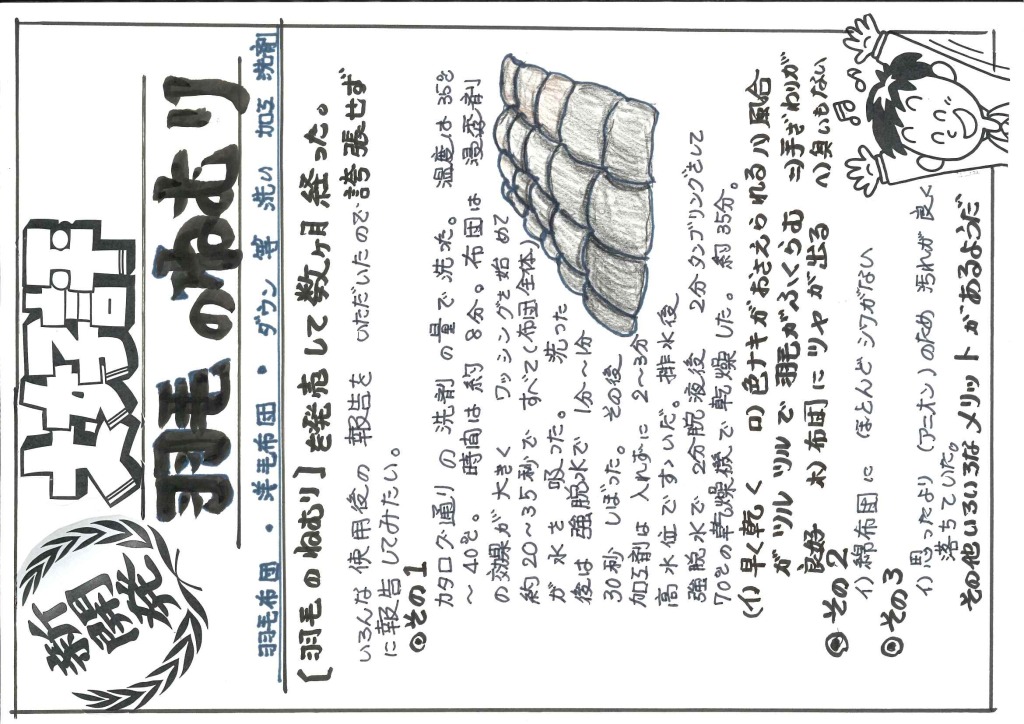 新開発
大好評
羽毛のねむり
羽毛布団・洋毛布団・ダウン等 洗い 加工 洗剤
〔羽毛のねむり〕を発売して数ヶ月経った。
いろんな使用後の報告をいただいたので誇張せず
に報告してみたい。
◎その1
カタログ通りの洗剤の量で洗た。 温度は35℃
〜40℃。 時間は約8分。布団は 浸透剤
の効果が大きく ワッシングを始めて
約20〜35秒で すべて(布団全体)
が水を吸った。 洗った
後は 強脱水で 1分〜1分
30秒しぼった。 その後
加工剤は入れずに 2〜3分
高水位ですすいだ。排水後
強脱水で2分脱液後 2分タンブリングをして
70℃の乾燥機で乾燥した。 約35分。
(イ)早く乾く ロ)色ナキがおさえられる ハ)風合
がツルツルで羽毛がふくらむ ニ)手ざわりが
良好 ホ)布団にツヤが出る ヘ)臭いもない
◎その2
イ)綿布団に ほとんどシワがない
◎その3
イ)思ったより(アニオン)のため 汚れが良く
落ちていた。
その他いろいろなメリットがあるようだ